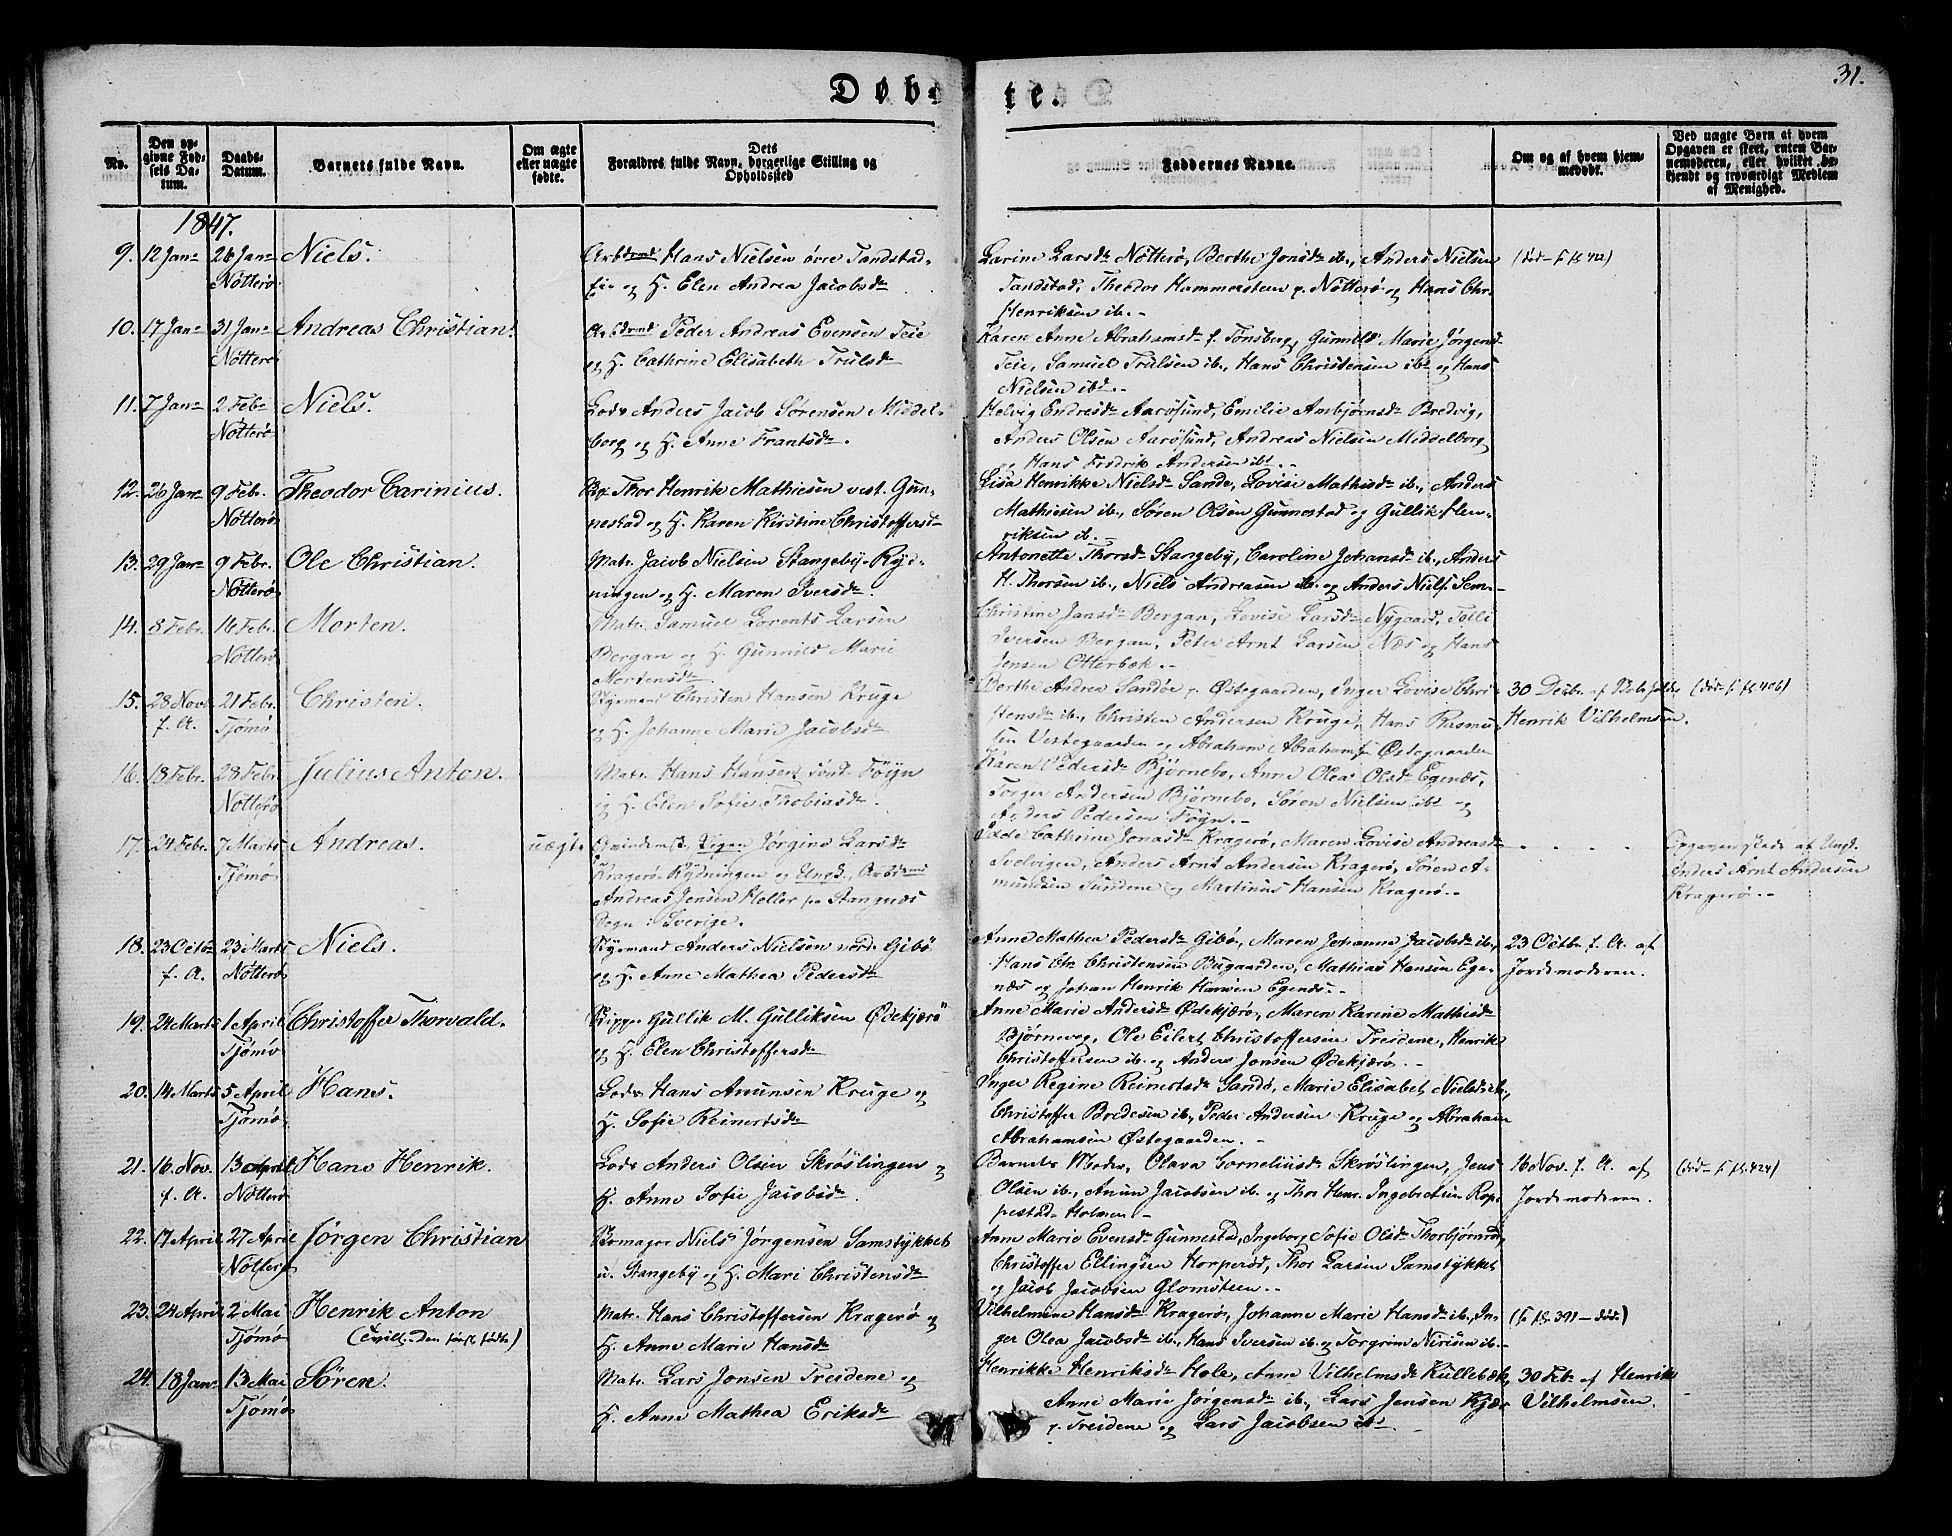 31.
Døbte.
No.
Den opgivne Fødsels Datum.
Daabs-Datum.
Barnets fulde Navn.
Om ægte eller uægte fødte.
Dets Forældres fulde Navn, borgerlige Stilling og Opholdssted
Faddernes Navne.
Om og af hvem hjemmedøbt.
Ved uægte Børn af hvem Opgaven er skeet, enten Barnemoderen, eller hvilket bekjendt og troværdigt Medlem af Menighed.
1847.
9. 12 Jan. 26 Jan. Niels.
Nötterö
Arbdsmd Hans Nielsen övre Tandstad-
eie og H. Elen Andrea Jacobsdr
Larine Larsdr Nötterö, Berthe Jonsdr ib., Anders Nielsen
Tandstad, Theodor Hammersteen p. Nötterö og Hans Chr.
Henriksen ib. -
10. 17 Jan. 31 Jan. Andreas Christian.
Nötterö
Arbdsmd Peder Andreas Evensen Teie
og H. Cathrine Elisabeth Trulsdr
Karen Anne Abrahamsdr f. Tønsberg, Gunnild Marie Jørgensd
Teie, Samuel Trulsen ib., Hans Christensen ibd og Hans
Nielsen ibd. -
11. 7 Jan. 2 Feb. Niels.
Nötterö
Lods Anders Jacob Sørensen Middel-
borg og H. Anne Frantsdr.
Helvig Endresdr Aarösund, Emilie Ambjørnsdr Bredvig,
Anders Olsen Aarösund, Andreas Nielsen Middelborg
og Hans Fredrik Andersen ibd. -
12. 26 Jan. 9 Febr. Theodor Carinius.
Nötterö
Thor Henrik Mathiesen vest. Gun-
nestad og H. Karen Kirstine Christoffersd
Lisa Henrikke Nielsdr Sande, Lovise Mathisdr ib., Anders
Mathiesen ib., Søren Olsen Gunnestad og Gullik Hen-
riksen ib. -
13. 29 Jan. 9 Febr. Ole Christian.
Nötterö
Matr. Jacob Nielsen Stangeby-Ryd-
ningen og H. Maren Iversdr.
Antonette Thorsdr Stangeby, Caroline Johansdr ib., Anders
H. Thorsen ib., Niels Andreasen ib. og Anders Niels. Sem. -
14. 8 Febr. 16 Febr. Morten.
Nötterö
Matr. Samuel Lorents Larsen
Bergan og H. Gunnild Marie
Mortensdr
Christine Jansdr Bergan, Lovise Larsdr Nygaard, Tolli
Iversen Bergan, Peter Arnt Larsen Næs og Hans
Jensen Otterbek. -
15. 28 Nov. 21 Febr. Christen.
f. A. Tjømö
Styrmand Christen Hansen Kruge
og H. Johanne Marie Jacobsdr
Berthe Andrea Sandøe p. Østegaarden, Inger Lovise Chri-
stensdr ib., Christen Andersen Kruge, Hans Rasmu-
sen Vestegaarden og Abraham Abrahamsen Østegaarden
30 Decbr. af Skoleholder
Henrik Vilhelmsen.
(død - f. fl. 406)
16. 18 Febr. 28 Febr. Julius Anton.
Nötterö
Matr. Hans Hansen sønd. Föyn
og H. Elen Sofie Thobiasdr.
Karen Pedersdr Bjørnebo, Anne Olea Olsdr Egenæs,
Torger Andersen Bjørnebo, Søren Nielsen ibd og
Anders Pedersen Föyn. -
17. 24 Febr. 7 Marts Andreas.
Tjømö
uægt.
Qvindemsk. Pigen Jørgine Larsdr
Kragerö-Rydningen og Ungk. Arbdsmd
Andreas Jensen Heller fra Stangnæs
Sogn i Sverige.
Edde Cathrine Jonasdr Kragerö, Maren Lovise Andreasdr
Svelvigen, Anders Arnt Andersen Kragerö, Søren A-
mundsen Sundene og Martinus Hansen Kragerö. -
Opgaven skede af Ungk.
Anders Arnt Andersen
Kragerö. -
18. 23 Octb. 23 Marts Niels.
f. A. Nötterö
Styrmand Anders Nielsen nord. Gibö
og H. Anne Mathea Pedersdr
Anne Mathea Pedersdr Gibö, Maren Johanne Jacobsdr ib.,
Hans Chr. Christensen Bugaarden, Mathias Hansen Ege-
næs og Johan Henrik Hansen Egenæs. -
23 Octbr. f. A. af
Jordemoderen.
19. 24 Marts 1 April Christoffer Thorvald.
Tjømö
Skipper Gullik M. Gulliksen Ødekjærö
og H. Elen Christoffersdr
Anne Marie Andersdr Ødekjærö, Maren Karine Mathisdr
Bjørnevog, Ole Eilert Christoffersen Treidene, Henrik
Christoffersen ib. og Anders Jonsen Ødekjærö. -
20. 14 Marts 5 April Hans.
Tjømö
Lods Hans Anunsen Kruge og
H. Sofie Reinertsdr
Inger Regine Reinertsdr Sandö, Marie Elisabet Nielsdr ib.,
Christoffer Bredesen ib., Peder Andersen Kruge og Abraham
Abrahamsen Østegaarden. -
21. 16 Nov. 13 April Hans Henrik.
f. A. Nötterö
Lods Anders Olsen Skrøslingen og
H. Anne Sofie Jacobsdr.
Barnets Moder, Olava Corneliusdr Skrøslingen, Jens
Olsen ib., Anun Jacobsen ib. og Thor Henr. Ingebretsen Rop-
pestad-Holmen -
16 Nov. f. A. af
Jordemoderen.
(død - f. fl. 424)
22. 17 April 27 April Jørgen Christian
Nötterö
Skomager Niels Jørgensen Samstykket
u. Stangeby og H. Mari Christensdr
Anne Marie Evensdr Gunnestad, Ingeborg Sofie Olsdr Thorbjørnrød,
Christoffer Ellingsen Horperöd, Thor Larsen Samstykket
og Jacob Jacobsen Glomsteen. -
23. 24 April 2 Mai Henrik Anton
Tjømö (Tvill. Den først fødte)
Matr. Hans Christoffersen Kragerö og
H. Anne Marie Hansdr
Vilhelmine Hansdr Kragerö, Johanne Marie Hansdr ib., In-
ger Olea Jacobsdr ib., Hans Iversen ib. og Torgrim Nirisen ib. -
(f. fl. 391 - død.)
24. 18 Jan. 13 Mai Sören.
Tjømö
Matr. Lars Jonsen Treidene og
H. Anne Mathea Eriksdr
Henrikke Henriksdr Hole, Anne Vilhelmsdr Küllebæk,
Anne Marie Jørgensdr ib., Lars Jensen Kjær
p. Treidene og Lars Jacobsen ibd.
30 Feb. af Henrik
Vilhelmsen.